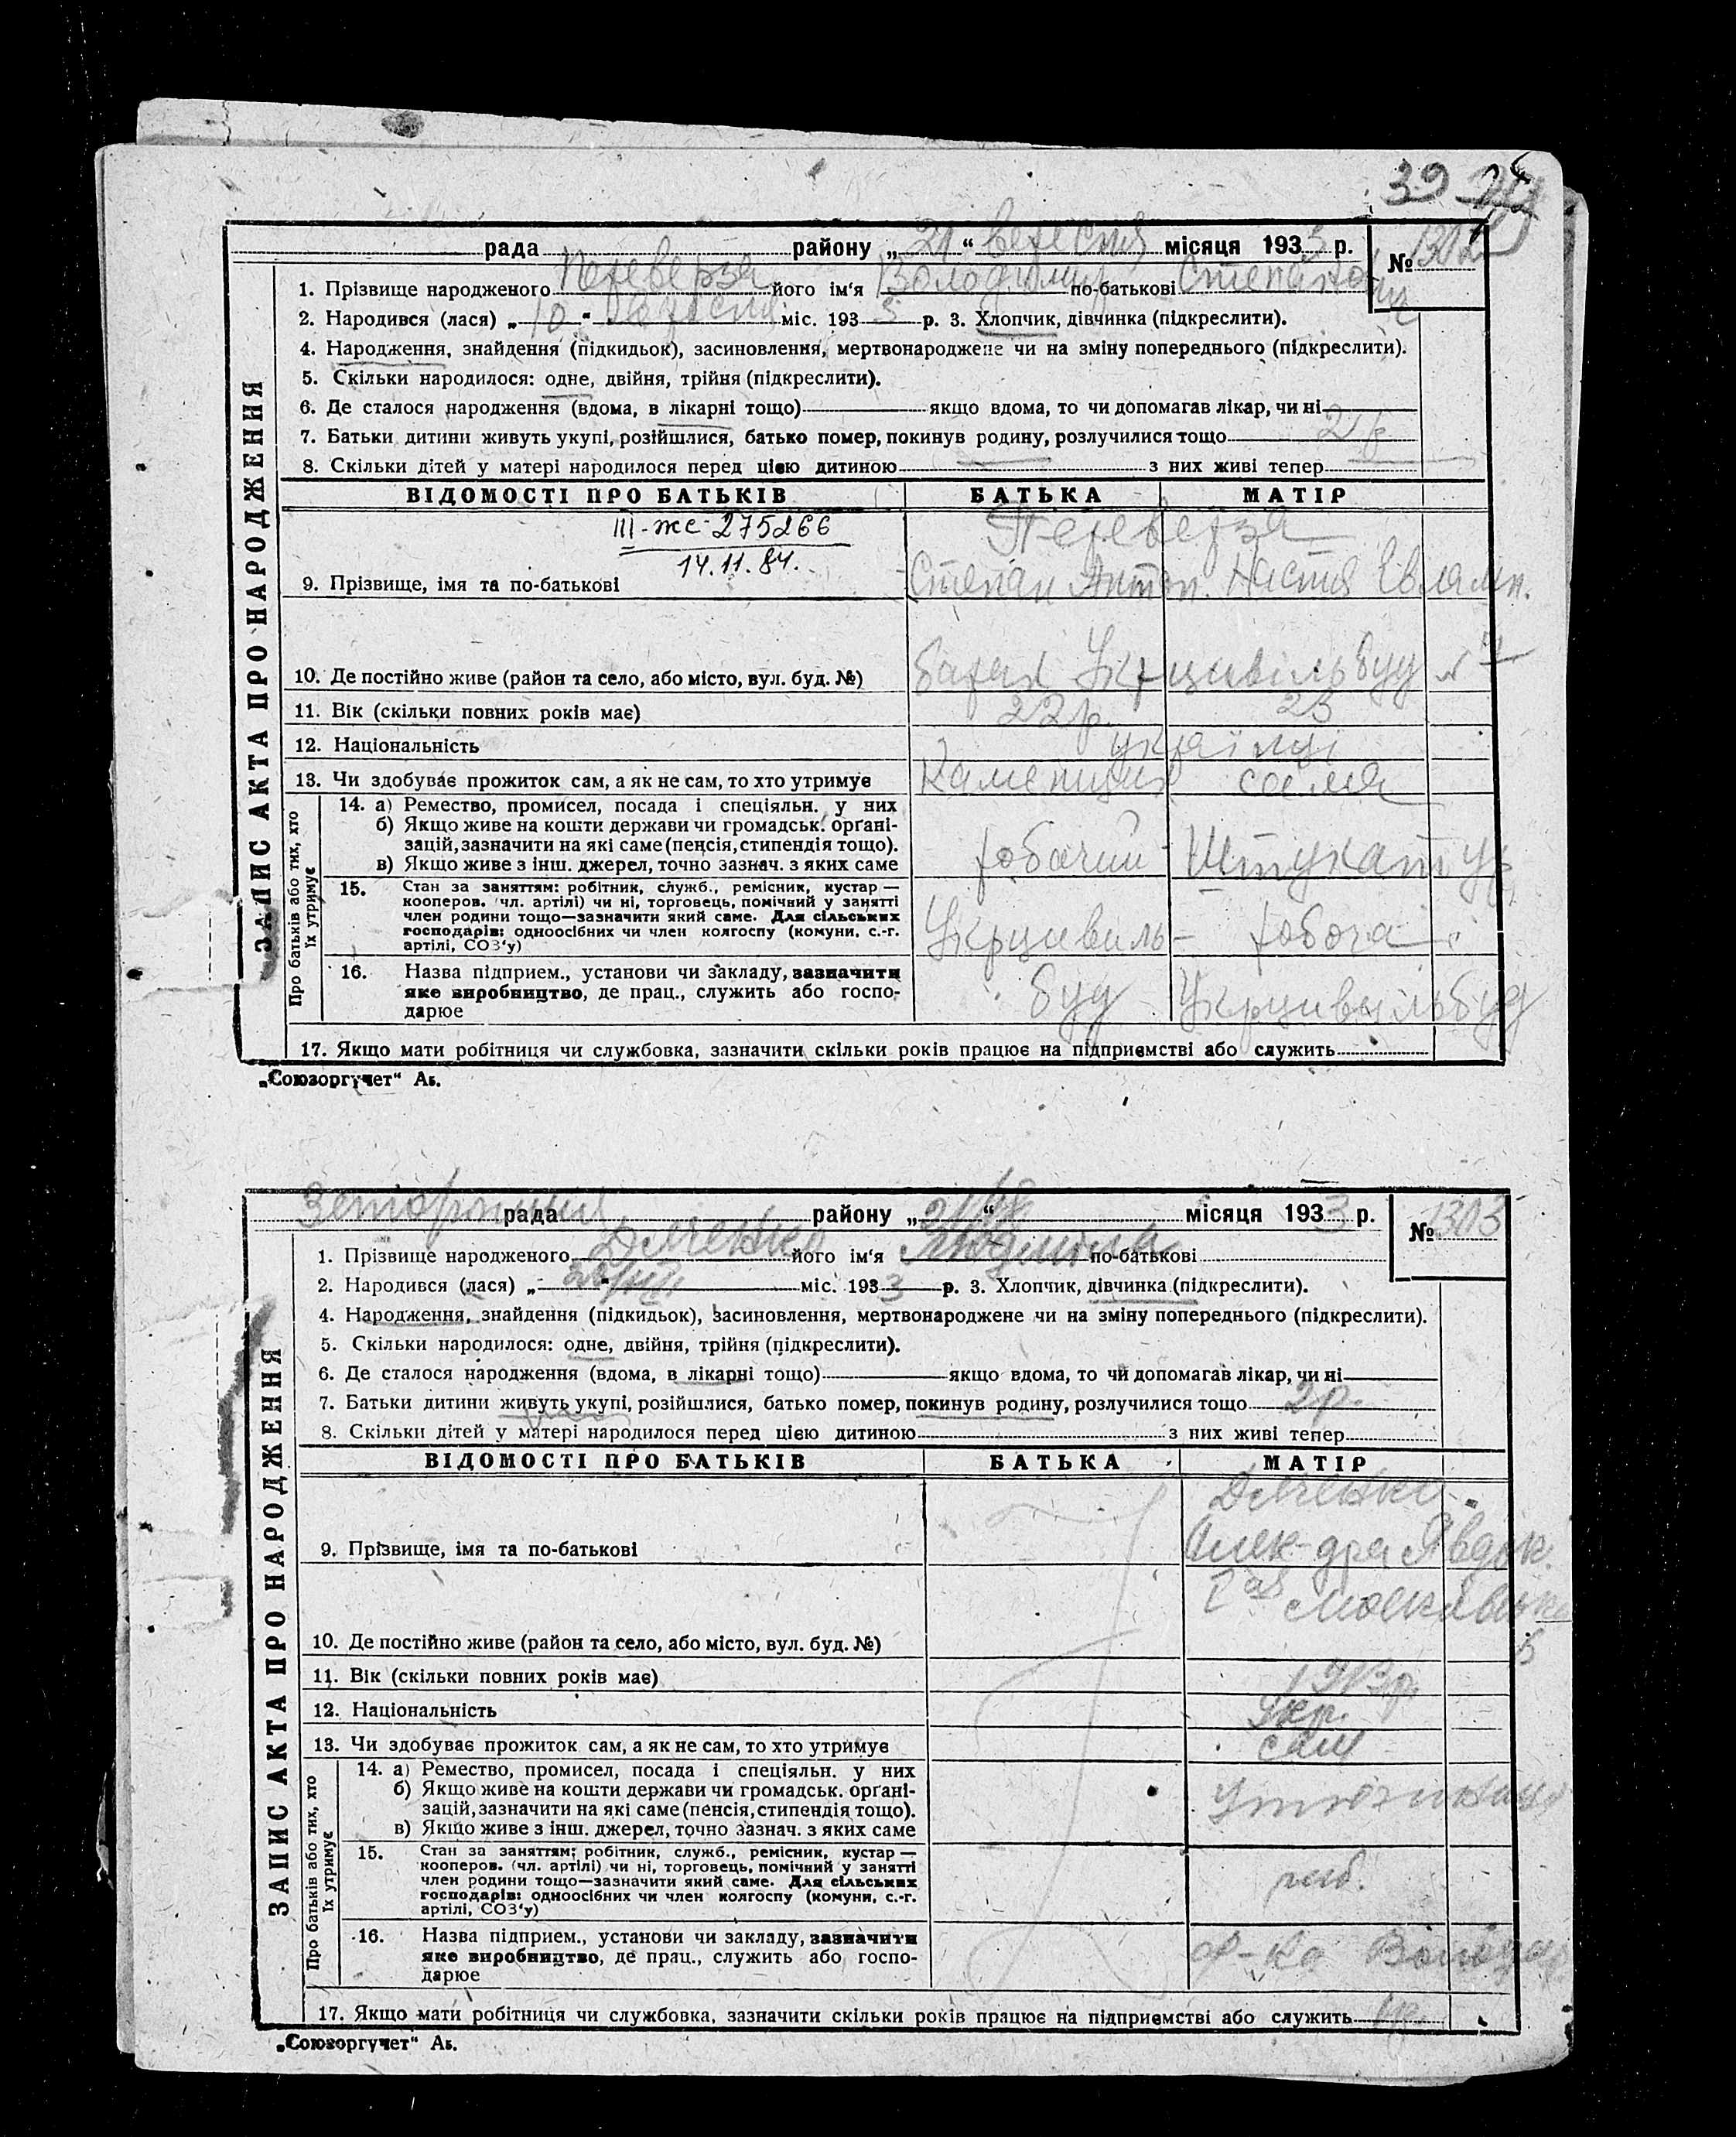 39
рада Переверза району „21“ вересня місяця 193 р. № 1302
1. Прізвище народженого Переверза його ім'я Володимир по-батькові Степанович
2. Народився (лася) „10“ вересня міс. 193 р. 3. Хлопчик, дівчинка (підкреслити).
4. Народження, знайдення (підкидьок), засиновлення, мертвонароджене чи на зміну попереднього (підкреслити).
5. Скільки народилося: одне, двійня, трійня (підкреслити).
6. Де сталося народження (вдома, в лікарні тощо) якщо вдома, то чи допомагав лікар, чи ні
7. Батьки дитини живуть укупі, розійшлися, батько помер, покинув родину, розлучилися тощо 2 р
8. Скільки дітей у матері народилося перед цією дитиною з них живі тепер
ЗАПИС АКТА ПРО НАРОДЖЕННЯ
ВІДОМОСТІ ПРО БАТЬКІВ БАТЬКА МАТІР
III-же-275266
14.11.84.
Переверза
9. Прізвище, імя та по-батькові Степан Антон. Настя Евламп.
10. Де постійно живе (район та село, або місто, вул. буд. №) барак Укрцивільбуд №
11. Вік (скільки повних років має) 22 р. 23
12. Національність українці
13. Чи здобуває прожиток сам, а як не сам, то хто утримує Каменщик сама
Про батьків або тих, хто їх утримує
14. а) Ремество, промисел, посада і спеціяльн. у них
б) Якщо живе на кошти держави чи громадськ. органі-
зацій, зазначити на які саме (пенсія, стипендія тощо). робочий Штукатур
в) Якщо живе з інш. джерел, точно зазнач. з яких саме
15. Стан за заняттям: робітник, служб., ремісник, кустар —
кооперов. (чл. артілі) чи ні, торговець, помічний у занятті
член родини тощо—зазначити який саме. Для сільських
господарів: одноосібних чи член колгоспу (комуни, с.-г. Укрцивиль- робоча
артілі, СОЗ'у)
16. Назва підприєм., установи чи закладу, зазначити
яке виробництво, де прац., служить або госпо- буд Укрцивильбуд
дарює
17. Якщо мати робітниця чи службовка, зазначити скільки років працює на підприємстві або служить
„Союзоргучет“ Аб.
рада району „21/“ місяця 1933 р. № 1303
1. Прізвище народженого Дяченко його ім'я Людмила по-батькові
2. Народився (лася) „ “ міс. 1933 р. 3. Хлопчик, дівчинка (підкреслити).
4. Народження, знайдення (підкидьок), засиновлення, мертвонароджене чи на зміну попереднього (підкреслити).
5. Скільки народилося: одне, двійня, трійня (підкреслити).
6. Де сталося народження (вдома, в лікарні тощо) якщо вдома, то чи допомагав лікар, чи ні
7. Батьки дитини живуть укупі, розійшлися, батько помер, покинув родину, розлучилися тощо 2р.
8. Скільки дітей у матері народилося перед цією дитиною з них живі тепер
ЗАПИС АКТА ПРО НАРОДЖЕННЯ
ВІДОМОСТІ ПРО БАТЬКІВ БАТЬКА МАТІР
Дяченко
9. Прізвище, імя та по-батькові Олек-дра Явдок.
10. Де постійно живе (район та село, або місто, вул. буд. №) 5
11. Вік (скільки повних років має)
12. Національність Укр.
13. Чи здобуває прожиток сам, а як не сам, то хто утримує сам
Про батьків або тих, хто їх утримує
14. а) Ремество, промисел, посада і спеціяльн. у них
б) Якщо живе на кошти держави чи громадськ. органі-
зацій, зазначити на які саме (пенсія, стипендія тощо).
в) Якщо живе з інш. джерел, точно зазнач. з яких саме
15. Стан за заняттям: робітник, служб., ремісник, кустар —
кооперов. (чл. артілі) чи ні, торговець, помічний у занятті
член родини тощо—зазначити який саме. Для сільських
господарів: одноосібних чи член колгоспу (комуни, с.-г. роб.
артілі, СОЗ'у)
16. Назва підприєм., установи чи закладу, зазначити
яке виробництво, де прац., служить або госпо- ф-ка
дарює
17. Якщо мати робітниця чи службовка, зазначити скільки років працює на підприємстві або служить
„Союзоргучет“ Аб.